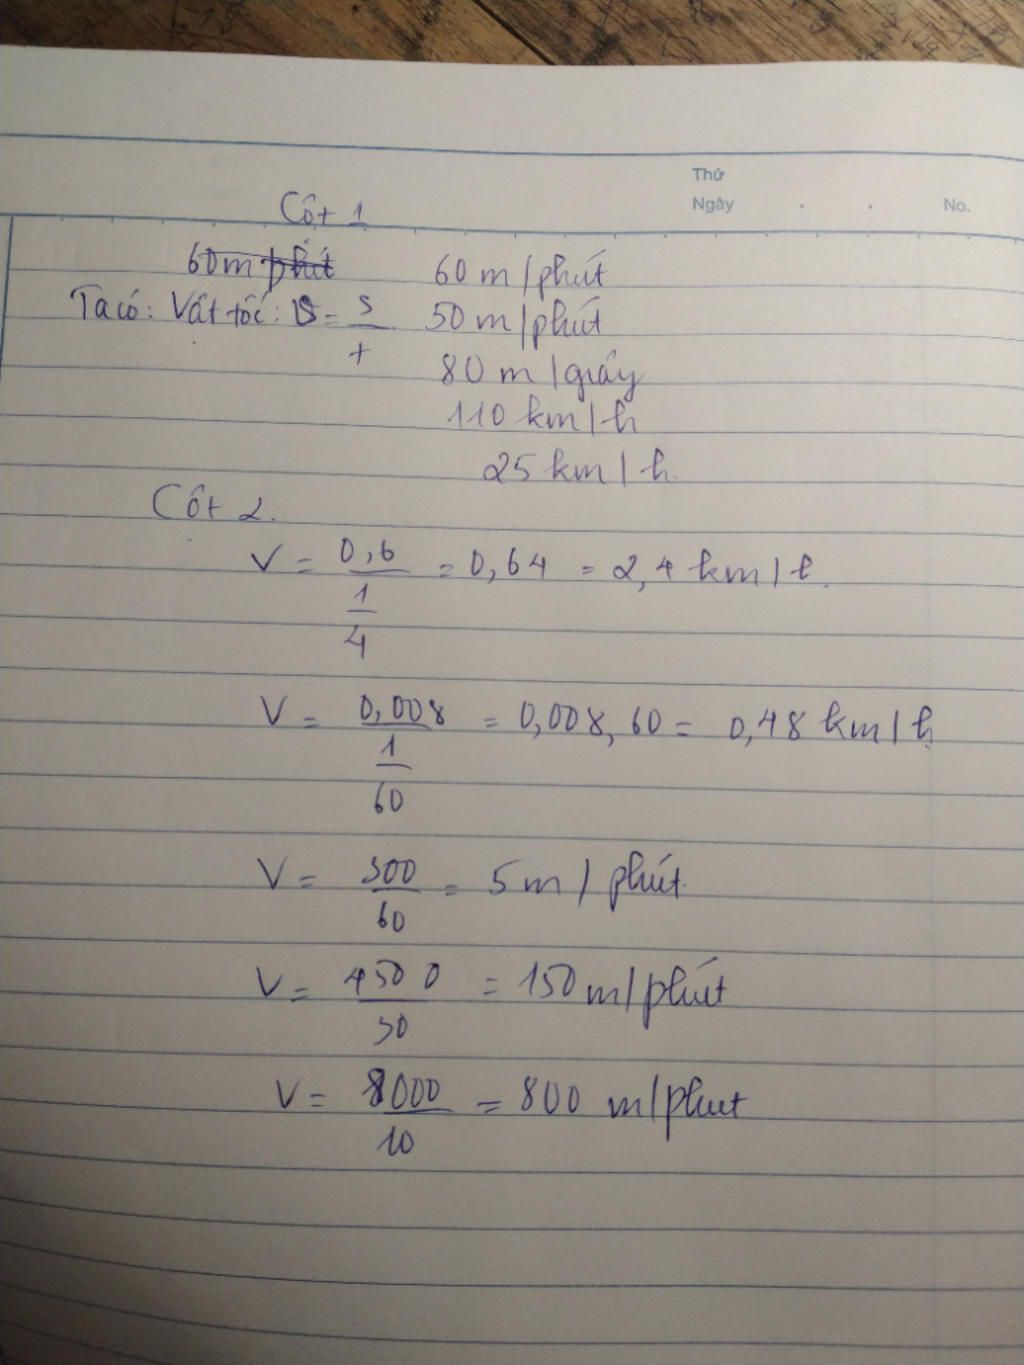 Thứ
Ngày . . No.
Cột 1
60m/phút 60 m/phút
Ta có: Vất tốc: v = s/t 50 m/phút
80 m/giây
110 km/h
25 km/h.
Cột 2.
V = 0,6/(1/4) = 0,64 = 2,4 km/h.
V = 0,008/(1/60) = 0,008,60 = 0,48 km/h
V = 300/60 = 5 m/phút.
V = 4500/30 = 150 m/phút
V = 8000/10 = 800 m/phut